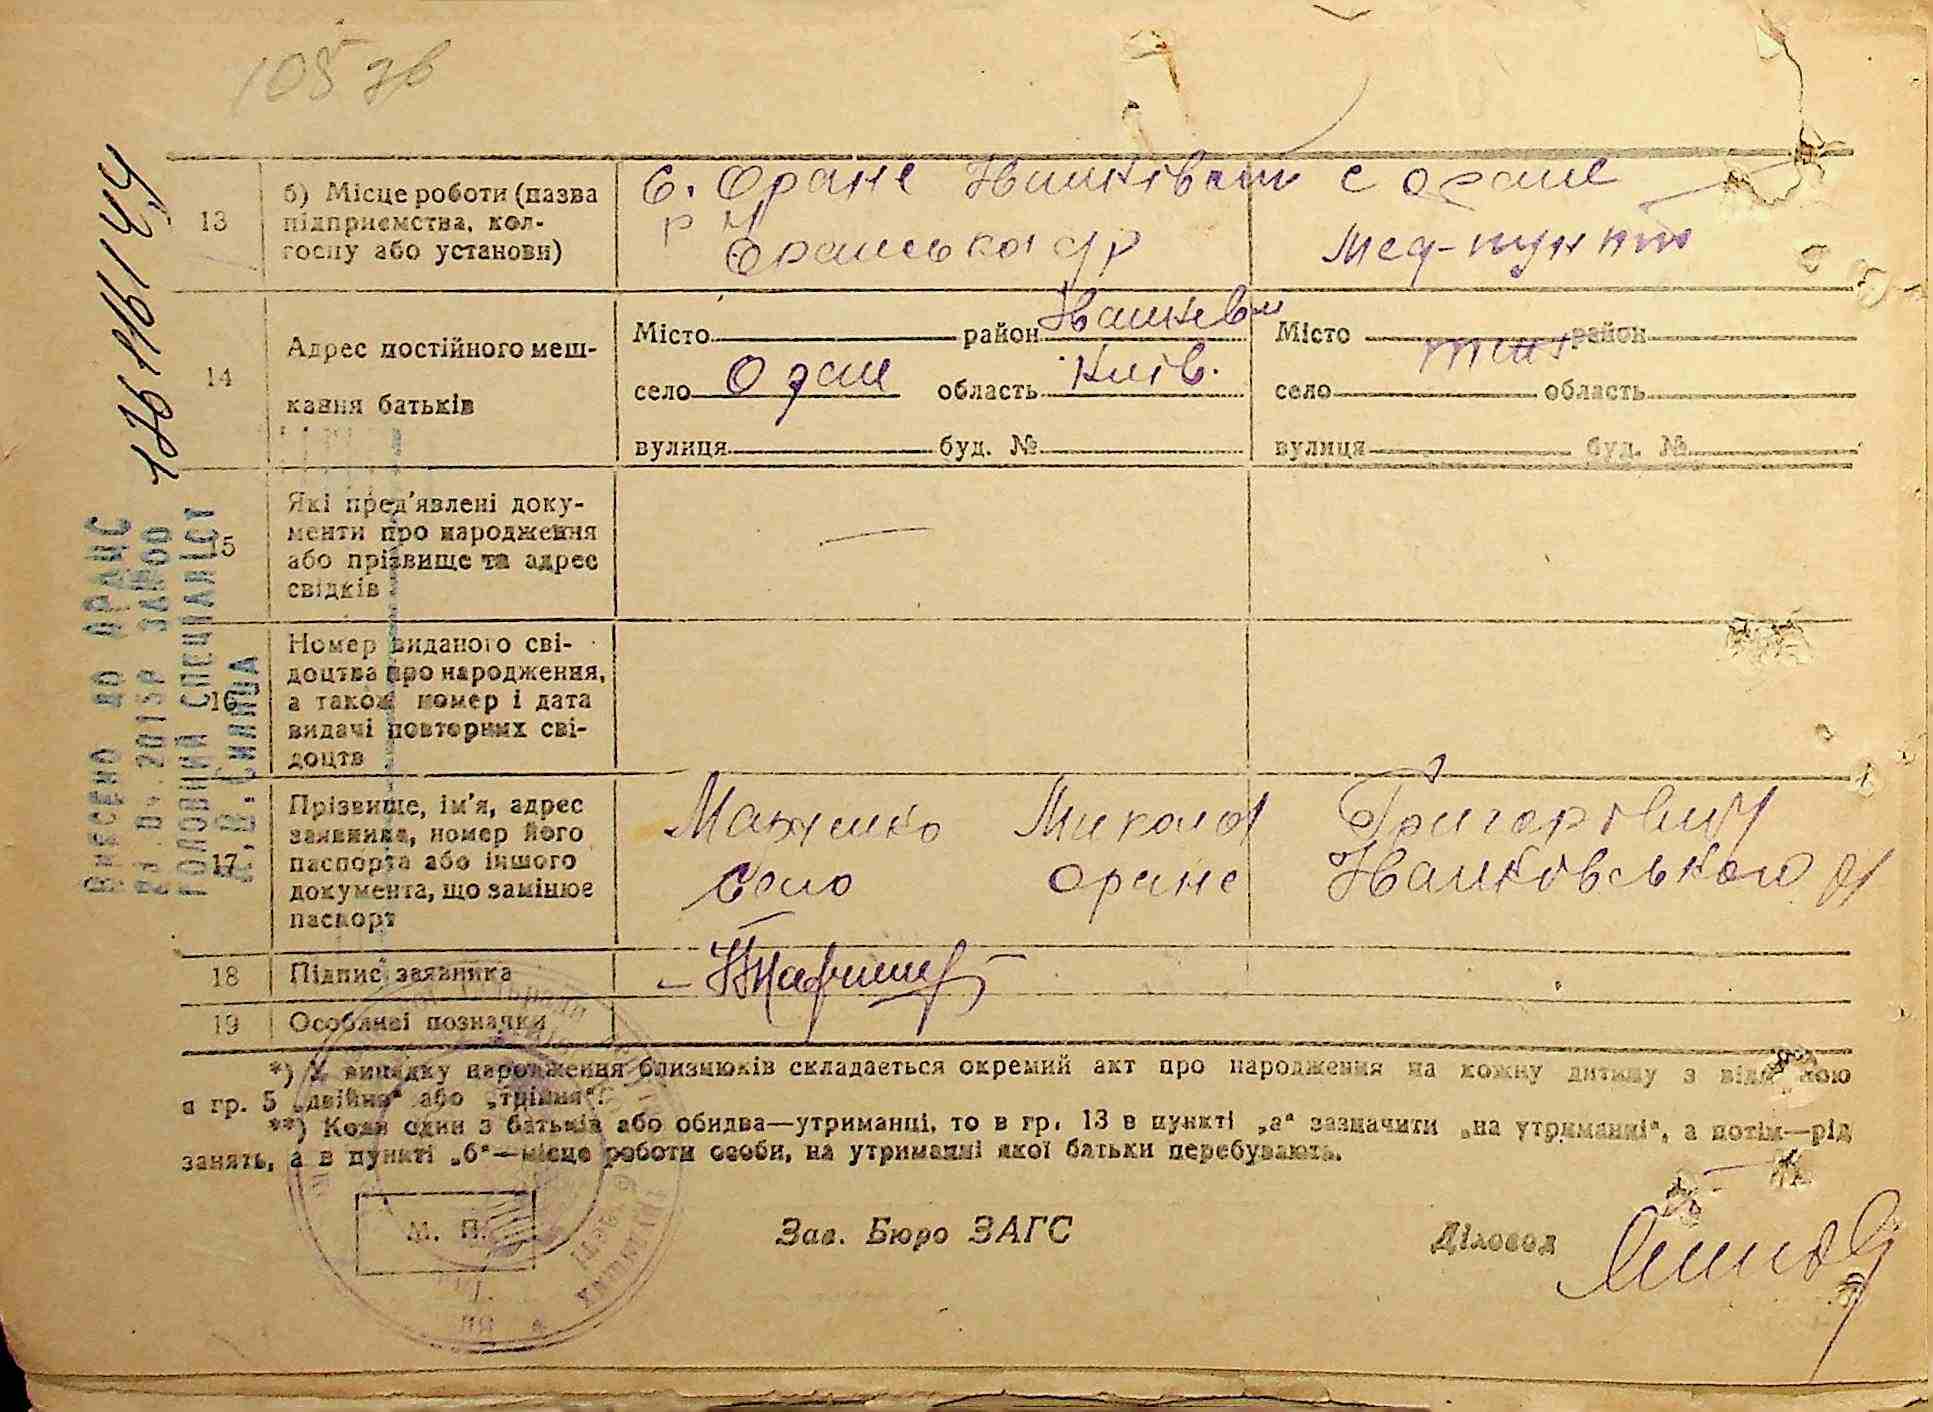 105 зв
13
б) Місце роботи (назва
підприємства, кол-
госпу або установи)
с. Оране Іванківськ
р н
Оранська с/р
с Оране
Мед-пункт
14
Адрес постійного меш-
кання батьків
Місто район Іванків
село Оране область Київ.
вулиця буд. №
Місто район
село область
вулиця буд. №
15
Які пред'явлені доку-
менти про народження
або прізвище та адрес
свідків
16
Номер виданого сві-
доцтва про народження,
а також номер і дата
видачі повторних сві-
доцтв
17
Прізвище, ім'я, адрес
заявника, номер його
паспорта або іншого
документа, що замінює
паспорт
Микола Григорович
село Оране Іванковського
18 Підпис заявника
19 Особливі позначки
*) У випадку народження близнюків складається окремий акт про народження на кожну дитину з відміткою
в гр. 5 „двійня“ або „трійня“.
**) Коли один з батьків або обидва—утриманці, то в гр. 13 в пункті „а“ зазначити „на утриманні“, а потім—рід
занять, а в пункті „б“—місце роботи особи, на утриманні якої батьки перебувають.
М. П.
Зав. Бюро ЗАГС
Діловод
ВНЕСЕНО ДО ДРАЦС
2015Р
ГОЛОВНИЙ СПЕЦІАЛІСТ